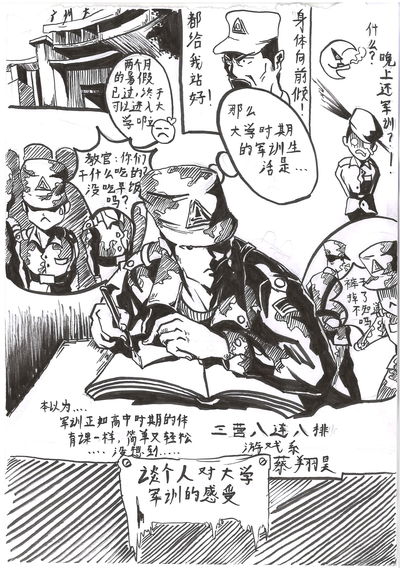 广州大
两个月
的暑假
已过,终于
可以进入大
学啦
都给我站好!
身体向前倾!
什么?
晚上还军训?!
那么
大学时期
的军训生
活是...
教官:你们
干什么吃的?
没吃早饭
吗?
掉了
吗
本以为....
军训正如高中时期的体
育课一样,简单又轻松
....没想到.....
三营八连八排
游戏系
蔡翔昊
谈个人对大学
军训的感受